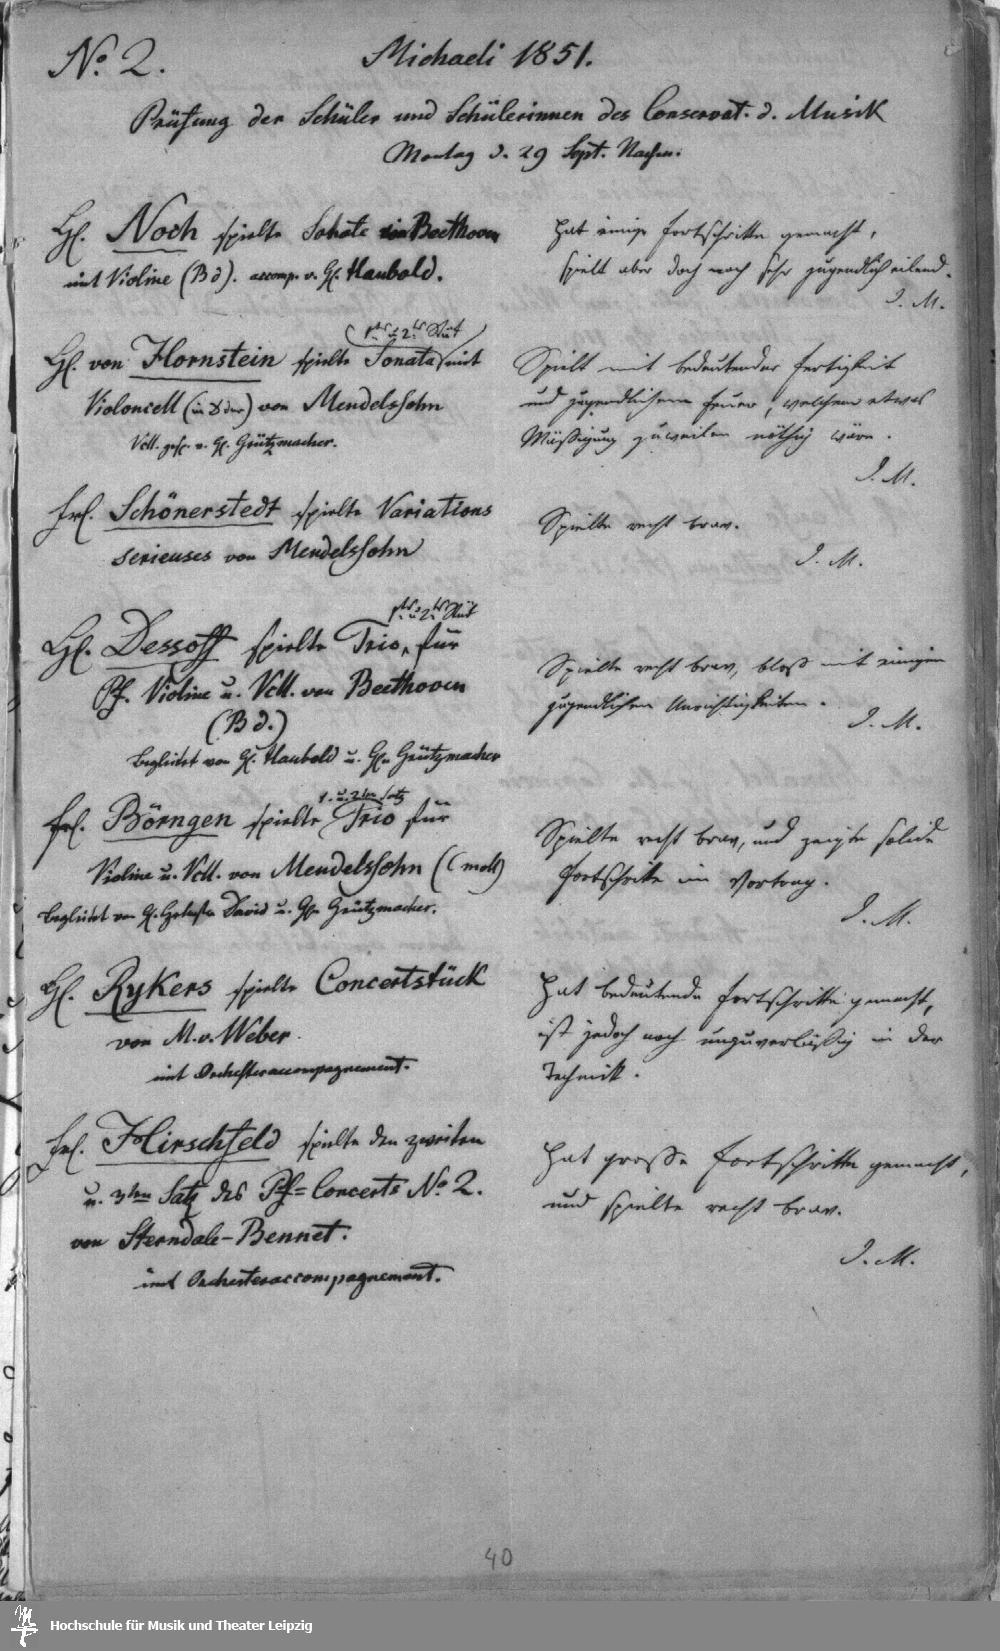 No. 2.
Michaeli 1851.
Prüfung der Schüler und Schülerinnen des Conservat. d. Musik
Montag d. 29 Sept. Nachm.
H. Noch spielte Sonate von Beethoven
mit Violine (B d). accomp. v. H. Haubold.
hat einige Fortschritte gemacht,
spielt aber doch noch sehr jugendlich eilend.
I. M.
1ter u 2ter Satz
H. von Hornstein spielte Sonata mit
Violoncell (in dur) von Mendelssohn
Vcll. gesp. v. H. Grützmacher.
Spielt mit bedeutender Fertigkeit
und jugendlichem Feuer, welchem etwas
Mäßigung zuweilen nöthig wäre.
I. M.
Frl. Schönerstedt spielte Variations
serieuses von Mendelssohn
Spielte recht brav.
I. M.
1ter u. 2ter Satz
H. Dessoff spielte Trio, für
Pf. Violine u. Vcll. von Beethoven
(B d.)
begleitet von H. Haubold u. H. Grützmacher
Spielte recht brav, bloß mit einigen
jugendlichen Unrichtigkeiten.
I. M.
1. u. 2ten Satz
Frl. Börngen spielte Trio für
Violine u. Vcll. von Mendelssohn (C moll)
begleitet von H. David u. H. Grützmacher.
Spielte recht brav, und zeigte solide
Fortschritte im Vortrag.
I. M.
H. Rykers spielte Concertstück
von M. v. Weber
mit Orchesteraccompagnement.
Hat bedeutende Fortschritte gemacht,
ist jedoch noch unzuverläßig in der
Technik.
Frl. Hirschfeld spielte den zweiten
u. 3ten Satz des Pf=Concerts No. 2.
von Sterndale-Bennet.
mit Orchesteraccompagnement.
Hat große Fortschritte gemacht,
und spielte recht brav.
I. M.
40
Hochschule für Musik und Theater Leipzig